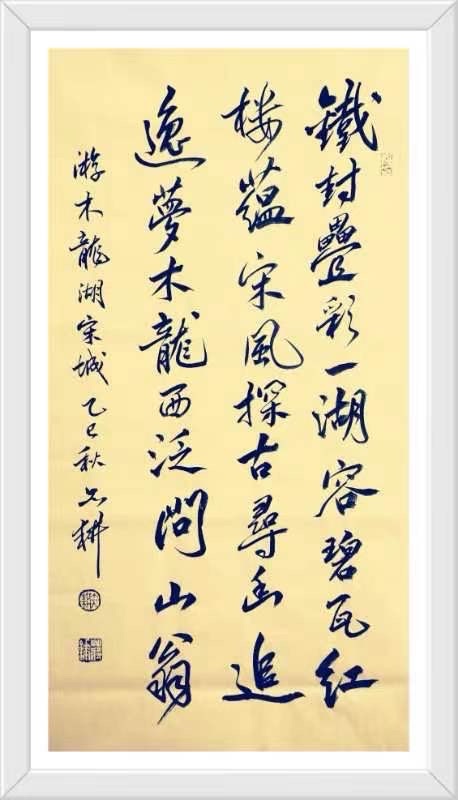 鐵封疊彩一湖容碧瓦紅
樓蕴宋風探古尋幽追
逸夢木龍西泛問山翁
游木龍湖宋城 乙巳秋 耕